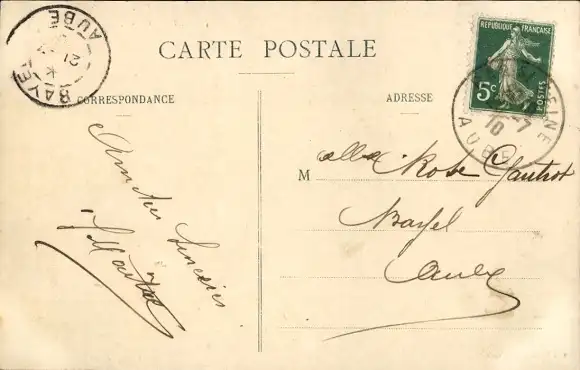 BAYEL
AUBE
21
CARTE POSTALE
RÉPUBLIQUE FRANÇAISE
5c
POSTES
SEINE
10
AUBE
CORRESPONDANCE
ADRESSE
Amitiés Sincères
M elle Rose Gautrot
Bayel
Aube